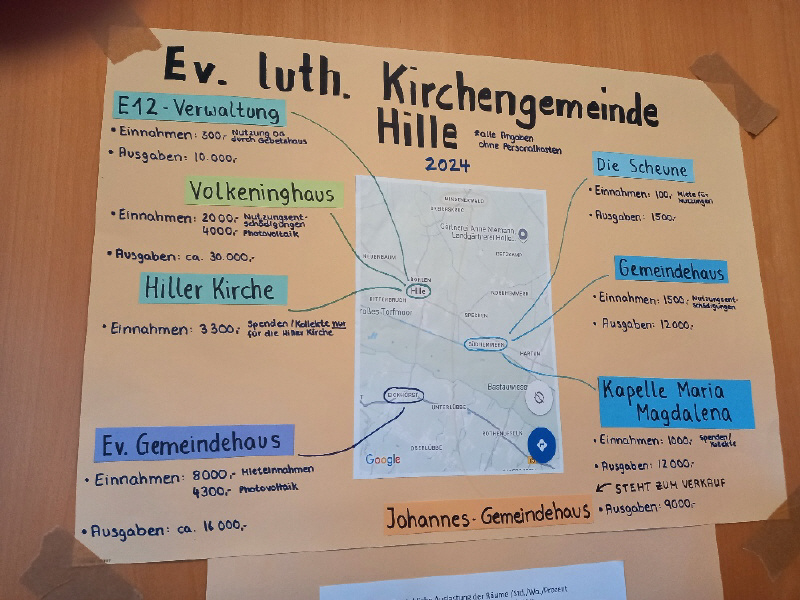 Ev. luth. Kirchengemeinde
Hille
*alle Angaben
ohne Personalkosten
2024
E12-Verwaltung
• Einnahmen: 300,- Nutzung OG
durch Gebetshaus
• Ausgaben: 10.000,-
Volkeninghaus
• Einnahmen: 2000,- Nutzungsent-
schädigungen
4000,- Photovoltaik
• Ausgaben: ca. 30.000,-
Hiller Kirche
• Einnahmen: 3300,- Spenden/Kollekte nur
für die Hiller Kirche
Ev. Gemeindehaus
• Einnahmen: 8000,- Mieteinnahmen
4300,- Photovoltaik
• Ausgaben: ca. 16000,-
Die Scheune
• Einnahmen: 100,- Miete für
Nutzungen
• Ausgaben: 1500,-
Gemeindehaus
• Einnahmen: 1500,- Nutzungsent-
schädigungen
• Ausgaben: 12000,-
Kapelle Maria
Magdalena
• Einnahmen: 1000,- Spenden/
Kollekte
• Ausgaben: 12000,-
STEHT ZUM VERKAUF
Johannes-Gemeindehaus
• Ausgaben: 9000,-
Gärtnerei Anne Niemann
Hille
EICKHORST
UNTERLÜBBE
OBERLÜBBE
Google
Auslastung der Räume /Std./Wo./Prozent